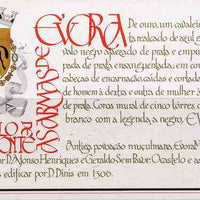 AS ARMAS DE
EVORA
De ouro, um cavaleir
ta realçado de azul e
valo negro ajaezado de prata e empun
de prata ensanguentada; em con
cabeças de encarnação caídas e cortada
de homem à dextra e outra de mulher à
de prata. Coroa mural de cinco torres,
branco com a legenda, a negro, E
Antiga povoação muçulmana, Evora
or D. Afonso Henriques e Geraldo Sem Pavor. O castelo e a
edificar por D. Dinis em 1306.